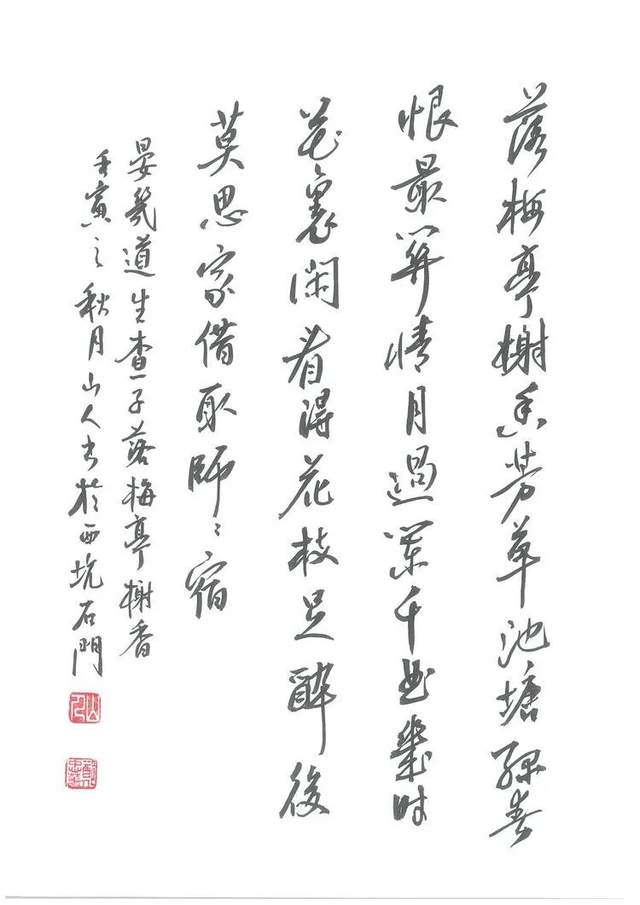 落梅亭榭香芳草池塘綠春
恨最關情月過闌干曲幾時
花裏閑看得花枝足醉後
莫思家借取師〻宿
晏幾道生查子落梅亭榭香
壬寅之秋月山人書於西坑石門
山人